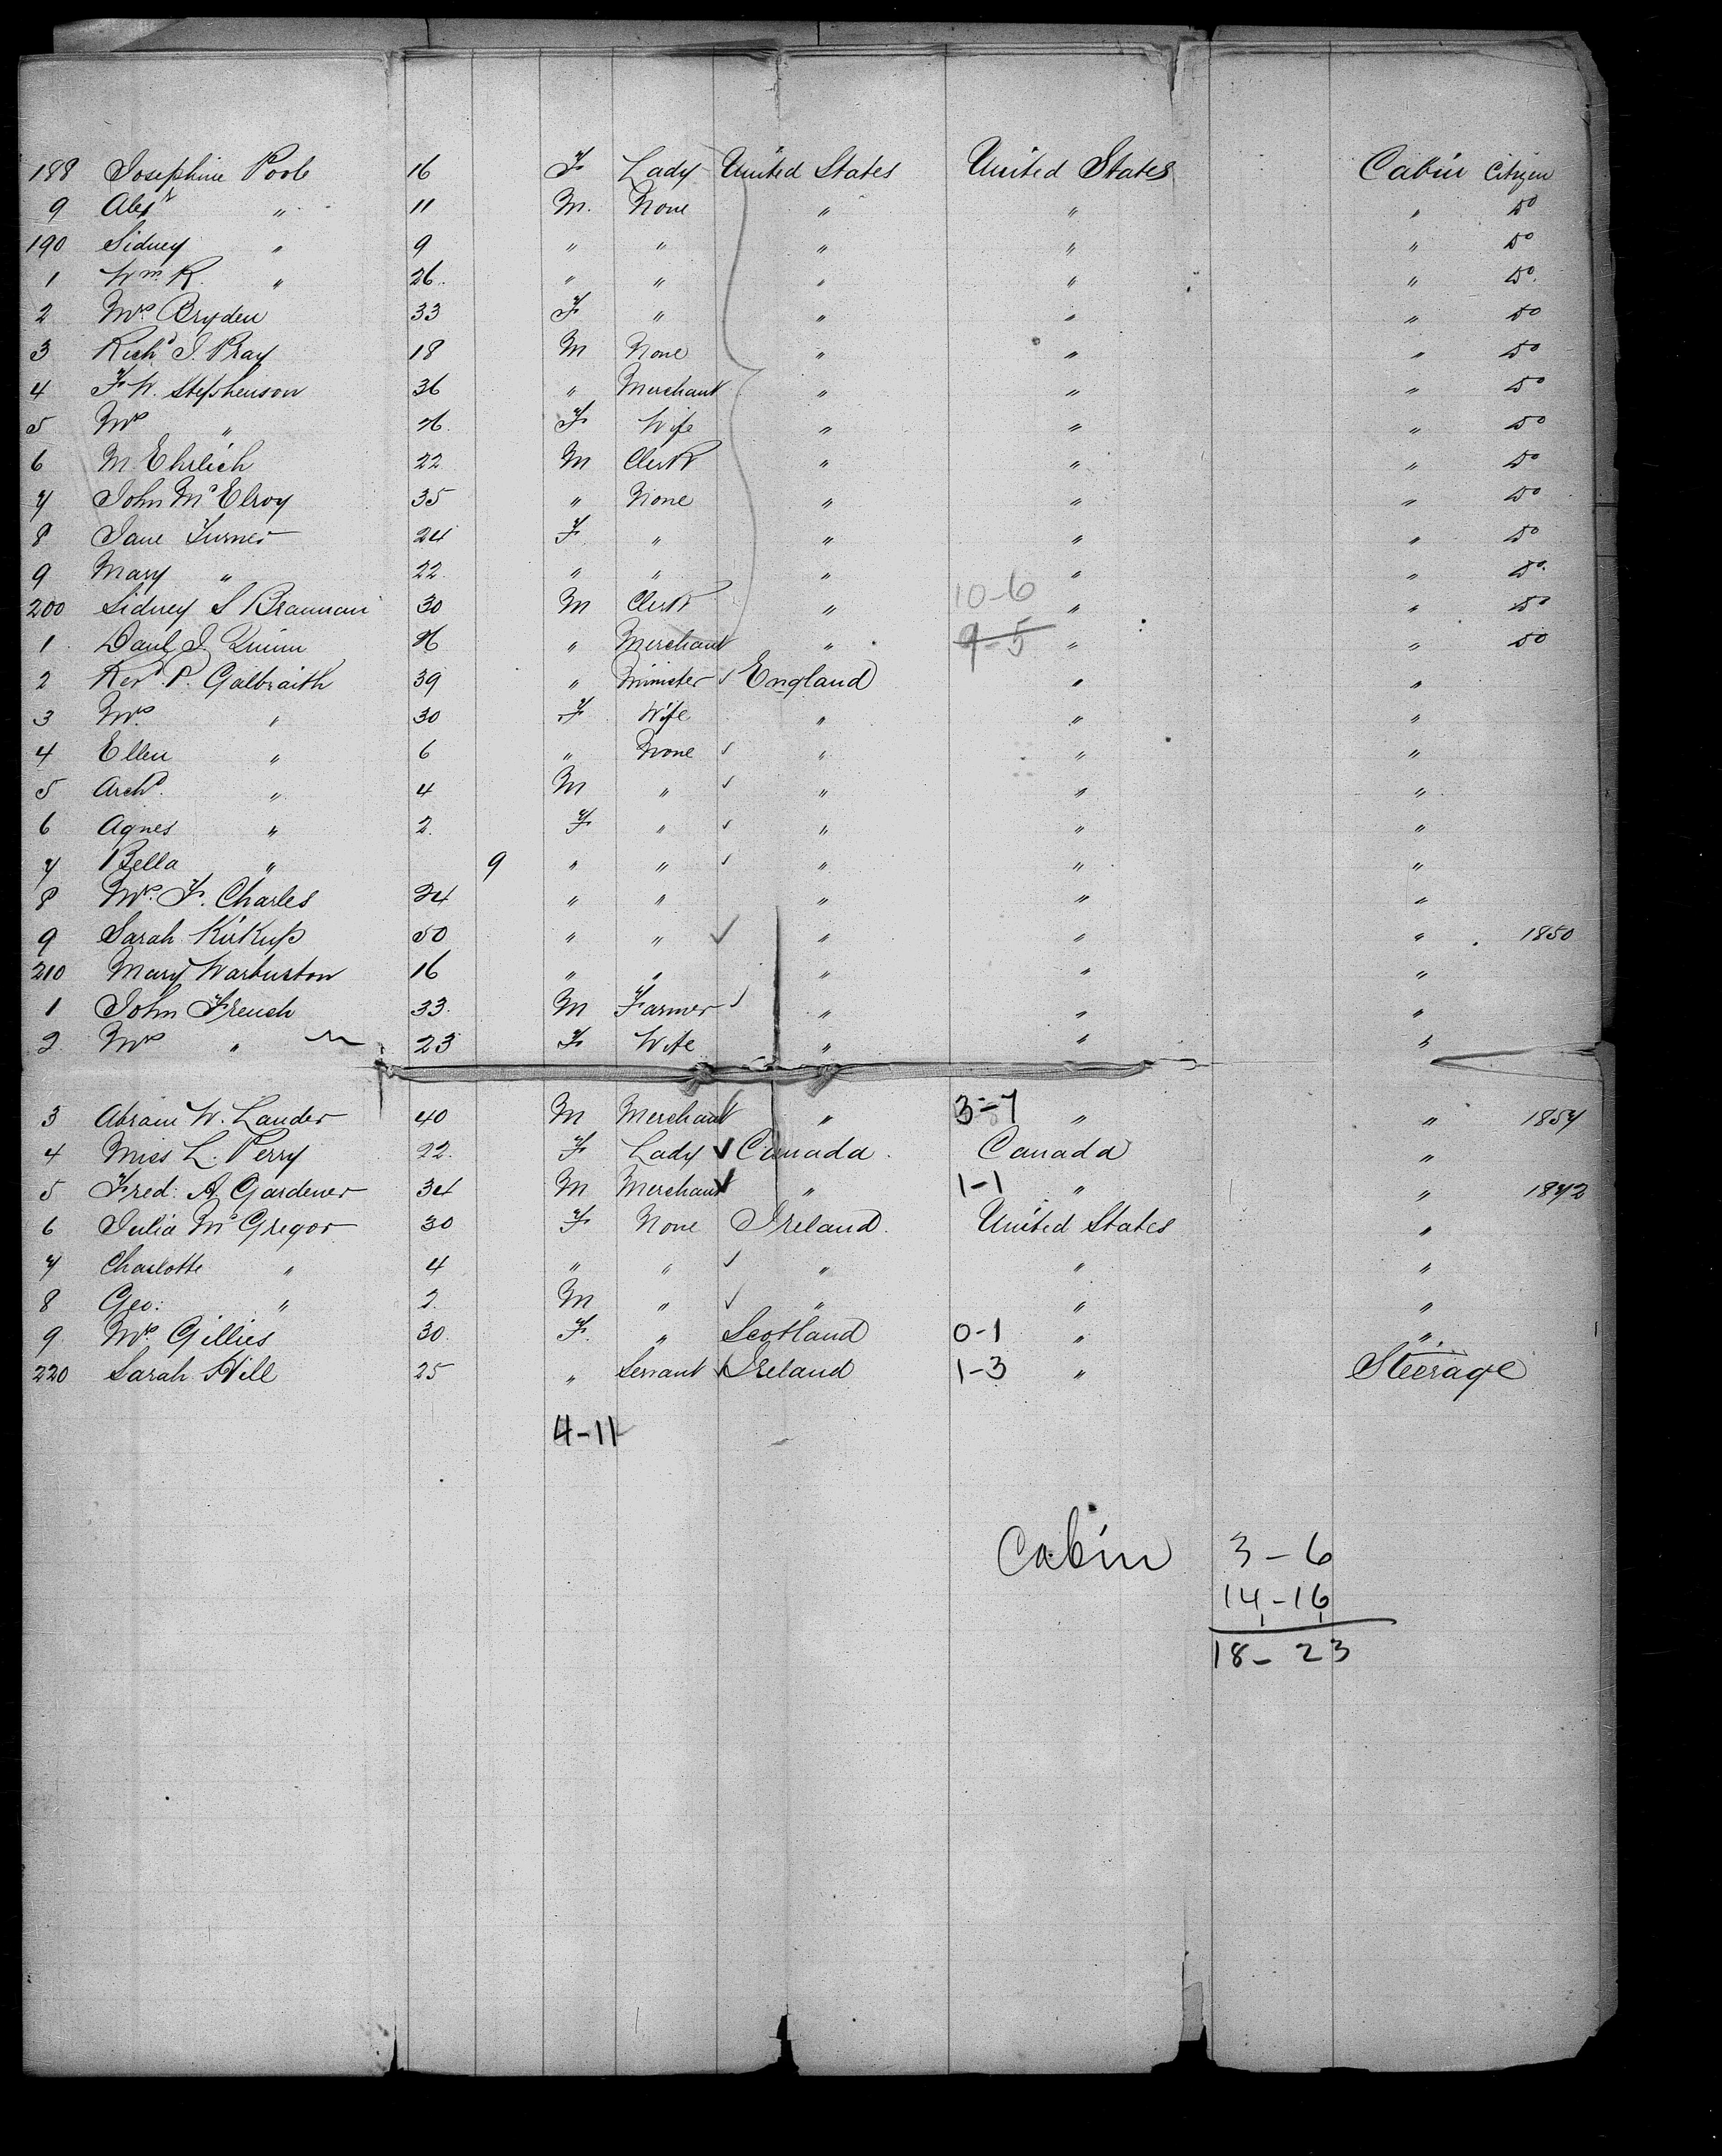 188 Josephine Poole 16 F Lady United States United States Cabin Citizen
9 Alexr " 11 M. None " " " Do
190 Sidney " 9 " " " " " Do
1 Wm. R. " 26 " " " " " Do
2 Mrs Bryden 33 F " " " " Do
3 Richd J. Pray 18 M None " " " Do
4 F. W. Stephenson 36 " Merchant " " " Do
5 Mrs " 26 F Wife " " " Do
6 M. Ehrlich 22 M Clerk " " " Do
7 John McElroy 35 " None " " " Do
8 Jane Turner 24 F " " " " Do
9 Mary " 22 " " " " " Do
200 Sidney S 30 M Clerk " 10-6 " " Do
1 Danl J. Quinn 26 " Merchant " 9-5 " " Do
2 Revd P. Galbraith 39 " Minister England " "
3 Mrs " 30 F Wife " " "
4 Ellen " 6 " None " " "
5 Archd. " 4 M " " " "
6 Agnes " 2 F " " " "
7 Bella " 9 " " " " "
8 Mrs. F. Charles 24 " " " " "
9 Sarah Kirkup 50 " " " " " 1850
210 Mary Warburton 16 " " " " "
1 John French 33 M Farmer " " "
2 Mrs " 23 F Wife " " "
3 Abram W. Lander 40 M Merchant " 3-7 " " 1857
4 Miss L. Perry 22 F Lady Canada Canada "
5 Fred: A. Gardener 34 M Merchant " 1-1 " " 1872
6 Julia McGregor 30 F None Ireland United States "
7 Charlotte " 4 " " " " "
8 Geo: " 2 M " " " "
9 Mrs Gillies 30 F " Scotland 0-1 " "
220 Sarah Hill 25 " Servant Ireland 1-3 " Steerage
4-11
Cabin 3-6
14-16
18-23